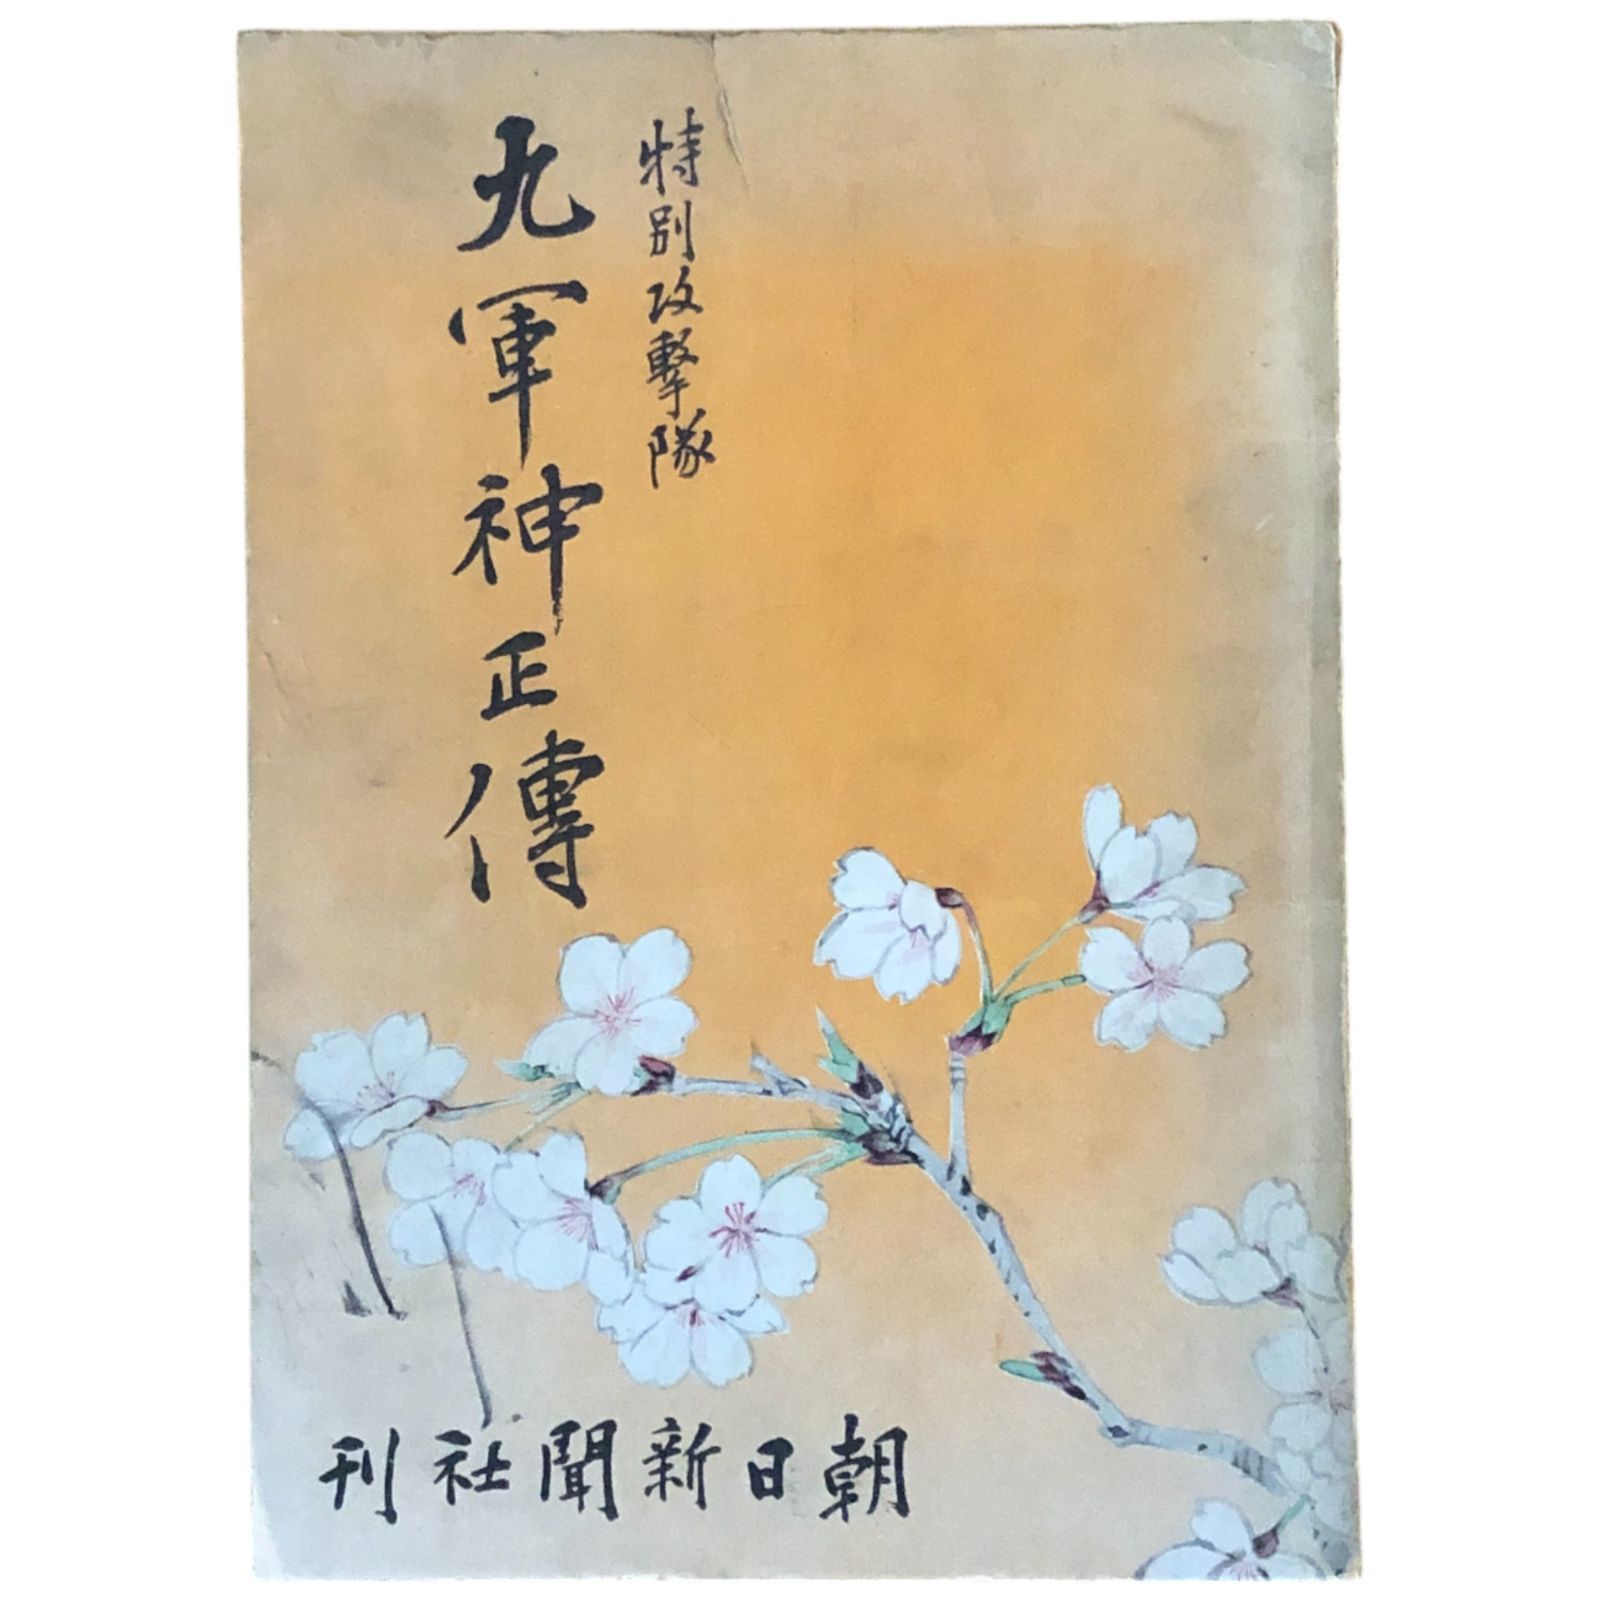 特別攻撃隊
九軍神正傳
刊社聞新日朝